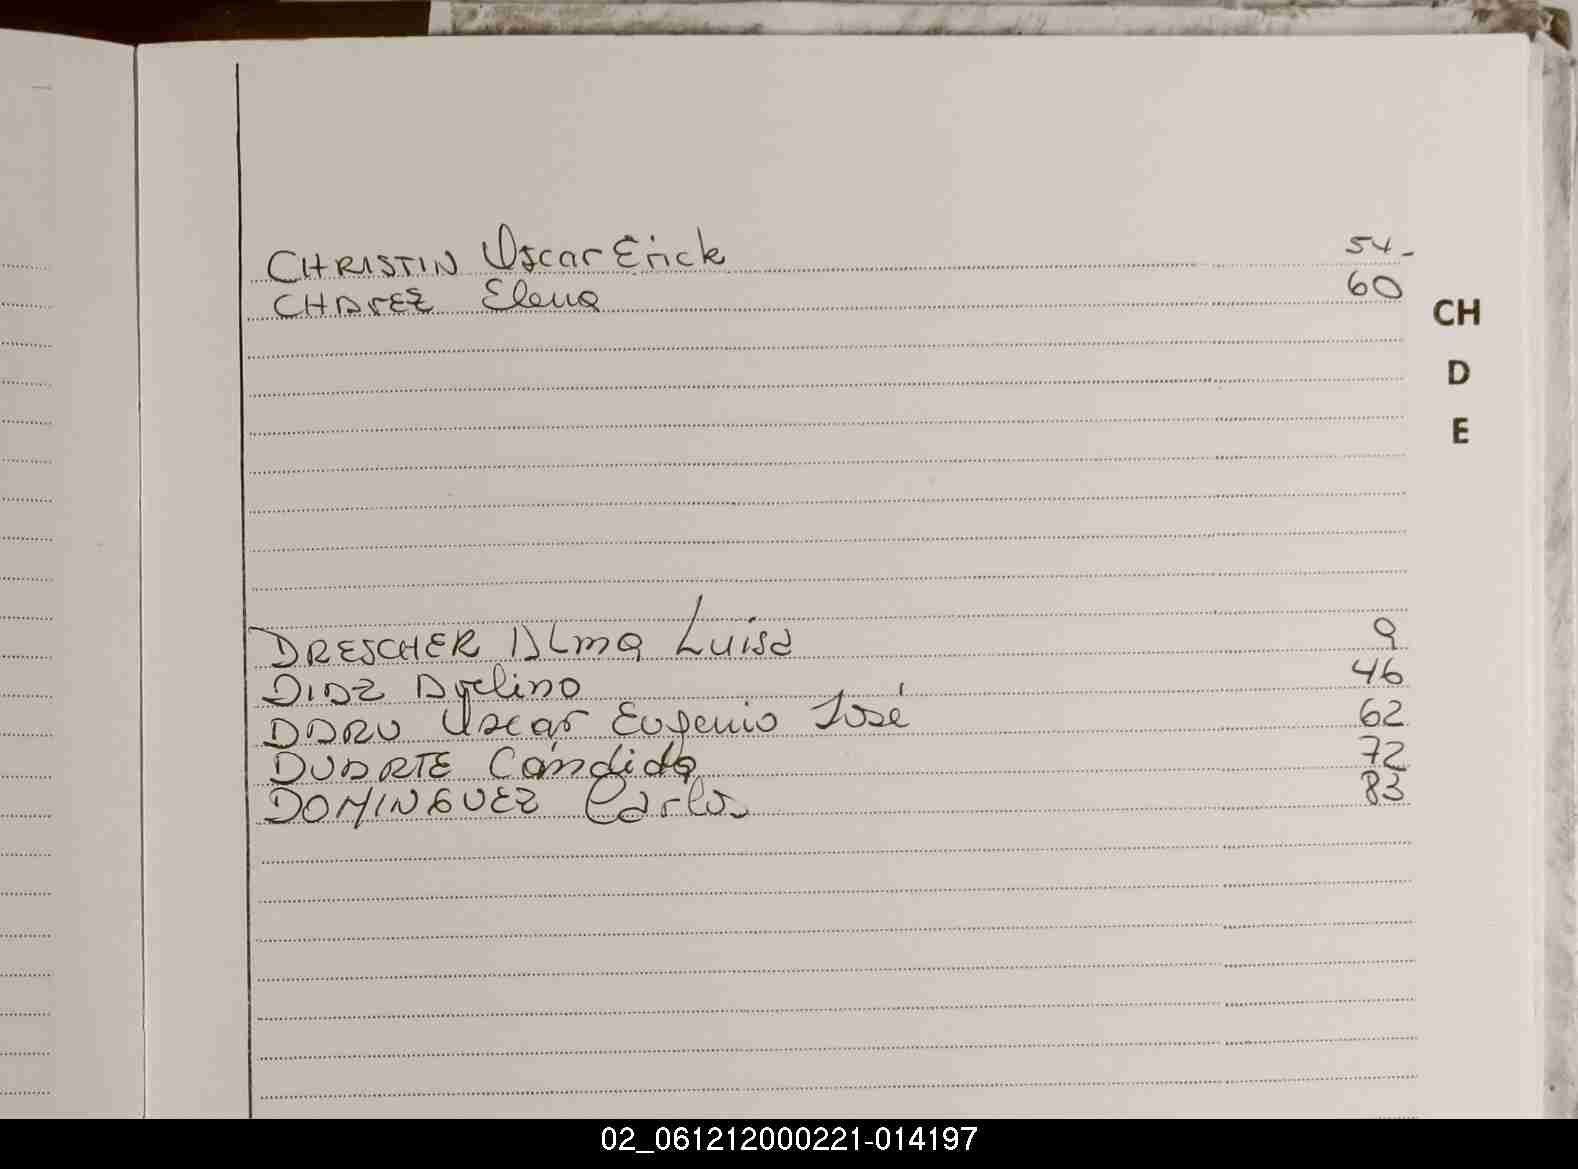 CHRISTIN Oscar Erick 54-
CHAVEZ Elena 60
CH
D
E
DRESCHER ALMA Luisa 9
DIAZ Avelino 46
DARU Oscar Eugenio José 62
DUARTE Cándida 72
DOMINGUEZ Carlos 83
02_061212000221-014197